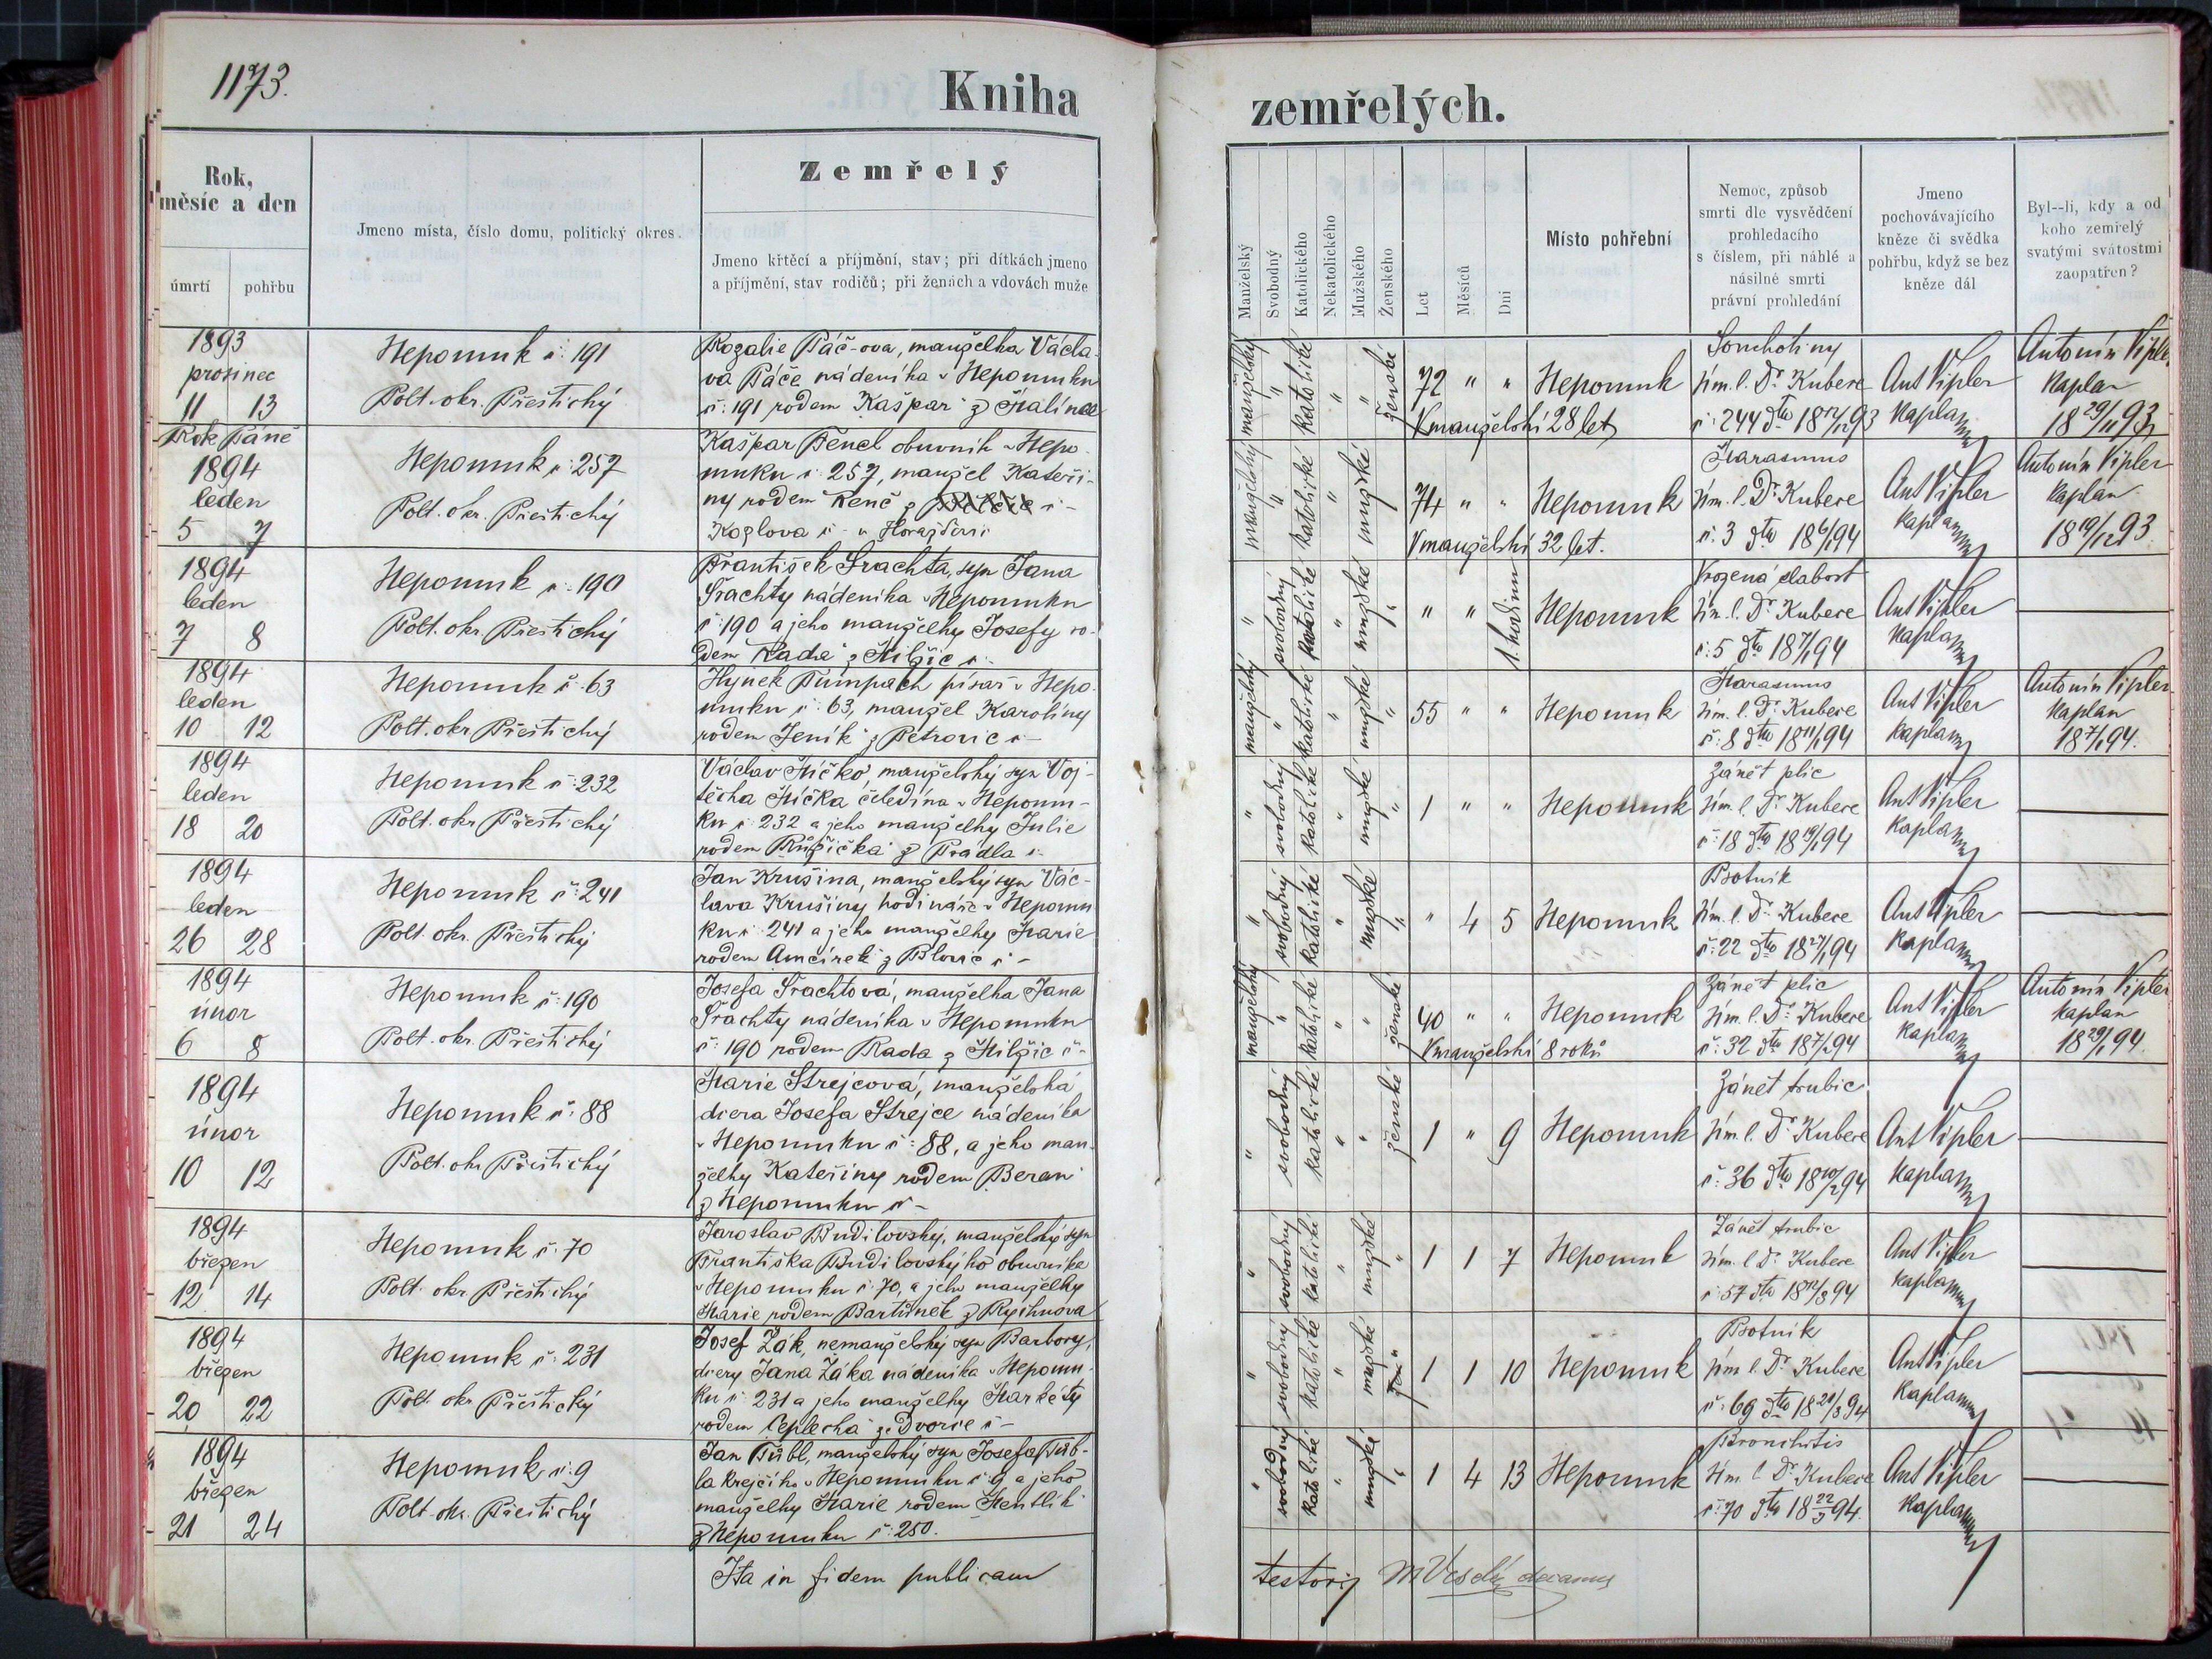 1173.
Kniha
zemřelých.
Rok,
měsíc a den
úmrtí
pohřbu
Jmeno místa, číslo domu, politický okres.
Zemřelý
Jmeno křtěcí a příjmění, stav; při dítkách jmeno
a příjmění, stav rodičů; při ženách a vdovách muže
Manželský
Svobodný
Katolického
Nekatolického
Mužského
Ženského
Let
Měsíců
Dní
Místo pohřební
Nemoc, způsob
smrti dle vysvědčení
prohledacího
s číslem, při náhlé a
násilné smrti
právní prohledání
Jmeno
pochovávajícího
kněze či svědka
pohřbu, když se bez
kněze dál
Byl--li, kdy a od
koho zemřelý
svatými svátostmi
zaopatřen?
1893
prosinec
11 13
Nepomuk č: 191
Polt. okr. Přeštický
Rozalie Páč-ova, manželka Václa-
va Páče nádeníka v Nepomuku
č: 191 rodem Kašpar z
manželský
"
katolické
"
"
ženské
72 " "
V manželství 28 let
Nepomuk
Souchotiny
Zím. l. Dr Kubere
č: 244 dto 18 12/12 93
Ant Vipler
Kaplan
Antonín Vipler
Kaplan
18 29/11 93
Rok Páně
1894
leden
5 7
Nepomuk č: 257
Polt. okr. Přeštický
Kašpar Benel obuvník v Nepo-
muku č: 257, manžel Kateři-
ny rodem Renč z
Kozlova č - u Horažďovic
manželský
"
katolické
"
mužské
74 " "
V manželství 32 let.
Nepomuk
Marasmus
Zím. l. Dr Kubere
č: 3 dto 18 6/1 94
Ant Vipler
Kaplan
Antonín Vipler
Kaplan
18 19/12 93
1894
leden
7 8
Nepomuk č: 190
Polt. okr. Přeštický
František Šrachta, syn Jana
Šrachty nádeníka v Nepomuku
č: 190 a jeho manželky Josefy ro-
dem Rada z Milžic č -
"
svobodný
katolické
mužské
"
" "
1. hodinu
Nepomuk
Vrozená slabost
Zím. l. Dr Kubere
č: 5 dto 18 7/1 94
Ant Vipler
Kaplan
1894
leden
10 12
Nepomuk č: 63
Polt. okr Přeštický
Hynek Pumpach písař v Nepo-
muku č: 63, manžel Karoliny
rodem Jeník z Petrovic č -
manželský
"
katolické
"
mužské
"
55 " "
Nepomuk
Marasmus
Zím. l. Dr Kubere
č: 8 dto 18 11/1 94
Ant Vipler
Kaplan
Antonín Vipler
Kaplan
18 7/1 94.
1894
leden
18 20
Nepomuk č: 232
Polt. okr Přeštický
Václav Míčko, manželský syn Voj-
těcha Míčka čeledína v Nepomu-
ku č: 232 a jeho manželky Julie
rodem Růžička z Prádla č -
"
svobodný
katolické
"
mužské
"
1 " "
Nepomuk
Zánět plic
Zím. l. Dr Kubere
č: 18 dto 18 19/1 94
Ant Vipler
Kaplan
1894
leden
26 28
Nepomuk č: 241
Polt. okr. Přeštický
Jan Krušina, manželský syn Vác-
lava Krušiny hodináře v Nepomu
ku č: 241 a jeho manželky Marie
rodem Amcírek z Blovic č -
"
svobodný
katolické
"
mužské
"
" 4 5
Nepomuk
Psotník
Zím. l. Dr Kubere
č: 22 dto 18 27/1 94
Ant Vipler
Kaplan
1894
únor
6 8
Nepomuk č: 190
Polt. okr. Přeštický
Josefa Šrachtová, manželka Jana
Šrachty nádeníka v Nepomuku
č: 190 rodem Rada z Milžic č -
manželský
"
katolické
"
"
ženské
40 " "
V manželství 8 roků
Nepomuk
Zánět plic
Zím. l. Dr Kubere
č: 32 dto 18 7/2 94
Ant Vipler
Kaplan
Antonín Vipler
Kaplan
18 29/1 94.
1894
únor
10 12
Nepomuk č: 88
Polt. okr Přeštický
Marie Strejcová, manželská
dcera Josefa Strejce nádeníka
v Nepomuku č: 88, a jeho man-
želky Kateřiny rodem Beran
z Nepomuku č -
"
svobodný
katolické
"
"
ženské
1 " 9
Nepomuk
Zánět trubic
Zím. l. Dr Kubere
č: 36 dto 18 10/2 94
Ant Vipler
Kaplan
1894
březen
12 14
Nepomuk č: 70
Polt. okr Přeštický
Jaroslav Budilovský, manželský syn
Františka Budilovského obuvníka
v Nepomuku č: 70, a jeho manželky
Marie rodem Bartůněk z Rychnova
"
svobodný
katolické
"
mužské
"
1 1 7
Nepomuk
Zánět trubic
Zím. l. Dr Kubere
č: 57 dto 18 12/3 94
Ant Vipler
Kaplan
1894
březen
20 22
Nepomuk č: 231
Polt. okr Přeštický
Josef Žák, nemanželský syn Barbory,
dcery Jana Žáka nádeníka v Nepomu-
ku č: 231 a jeho manželky Markéty
rodem Ceplecha ze Dvorce č -
"
svobodný
katolické
"
mužské
"
1 1 10
Nepomuk
Psotník
Zím l. Dr Kubere
č: 69 dto 18 21/3 94
Ant Vipler
Kaplan
1894
březen
21 24
Nepomuk č: 9
Polt. okr. Přeštický
Jan Tübl, manželský syn Josefa Tüb-
la krejčího v Nepomuku č: 9 a jeho
manželky Marie rodem Hentlik
z Nepomuku č: 250.
"
svobodný
katolické
"
mužské
"
1 4 13
Nepomuk
Bronchitis
Zím l. Dr Kubere
č: 70 dto 18 22/3 94.
Ant Vipler
Kaplan
Ita in fidem publicam
testor
M Veselý decanus